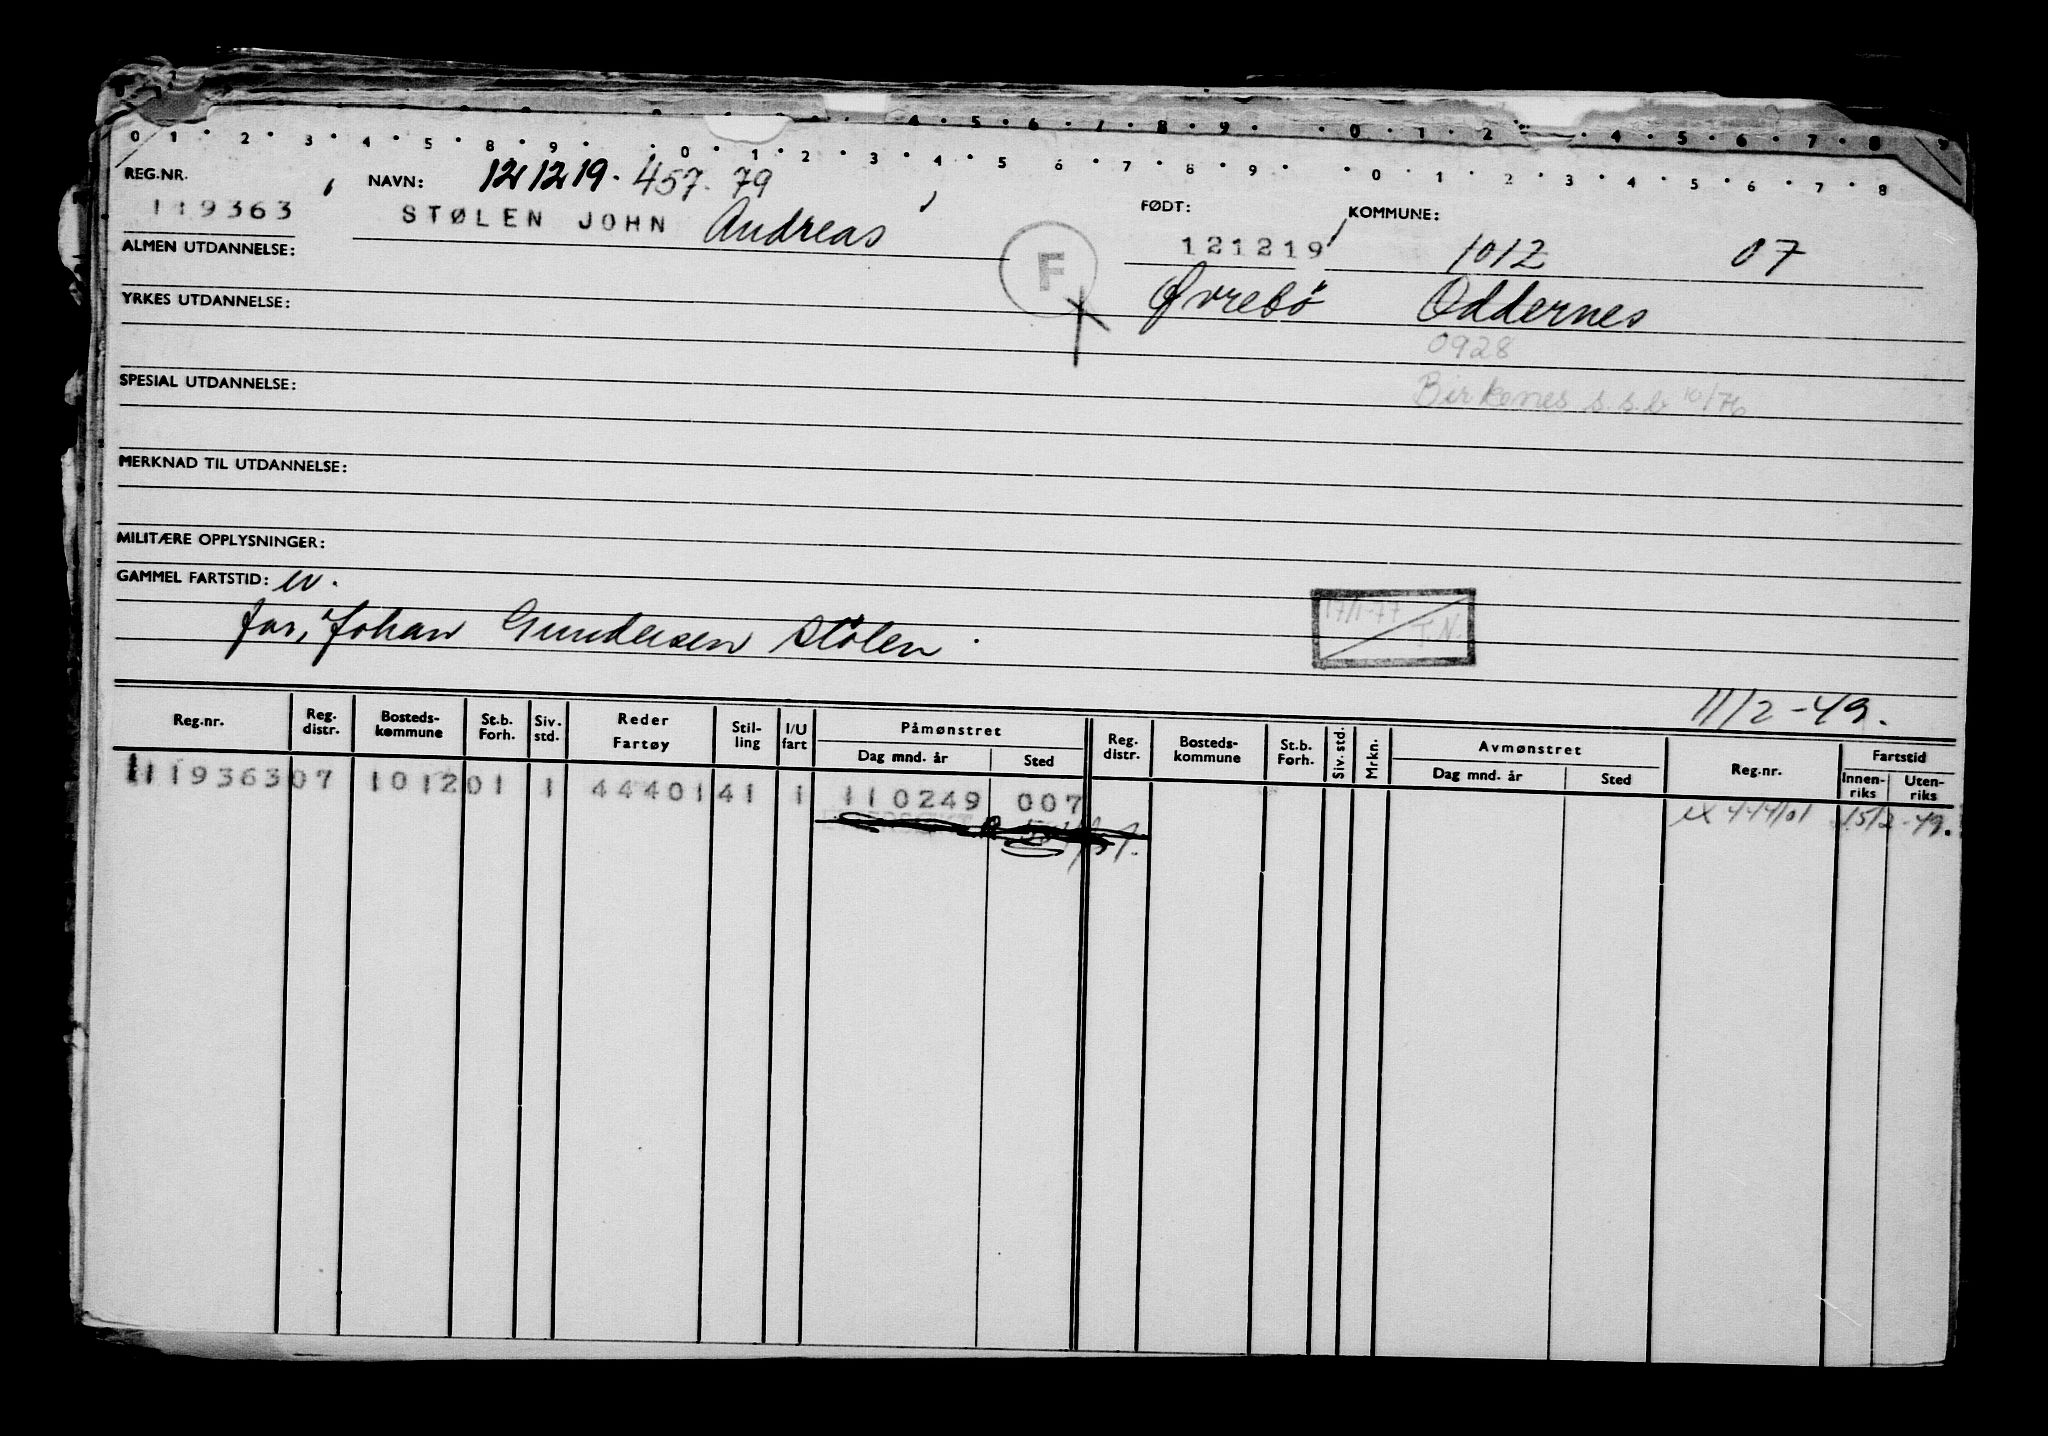 0 1 · 2 · 3 · 4 · 5 · 8 · 9 · · 0 · 1 · 2 · 3 · 4 · 5 · 6 · 7 · 8 · 9 · · 0 · 1 · 2 · 3 · 4 · 5 · 6 · 7 · 8
4 · 5 · 6 · 7 · 8 · 9 · · 0 · 1 · 2 · 4 · 5 · 6 · 7 · 8 9
REG.NR. NAVN: 121219. 457. 79 FØDT: KOMMUNE:
119363 STØLEN JOHN Andreas 121219 1012 07
ALMEN UTDANNELSE: F
YRKES UTDANNELSE: Øvrebö Oddernes
0928
SPESIAL UTDANNELSE: Birkenes s.s.b 10/76
MERKNAD TIL UTDANNELSE:
MILITÆRE OPPLYSNINGER:
GAMMEL FARTSTID:
far, Johan Gundersen Stölen. 17/1-77 T.N.
11/2-49.
Reg.nr. Reg. distr. Bosteds- kommune St.b. Forh. Siv. std. Reder Fartøy Stil- ling I/U fart Påmønstret Reg. distr. Bosteds- kommune St.b. Forh. Siv. std. Mrkn. Avmønstret Reg.nr. Fartstid
Dag mnd. år Sted Dag mnd. år Sted Innen- riks Uten- riks
119363 07 1012 01 1 44401 41 1 110249 007 444/01 15/2-49.